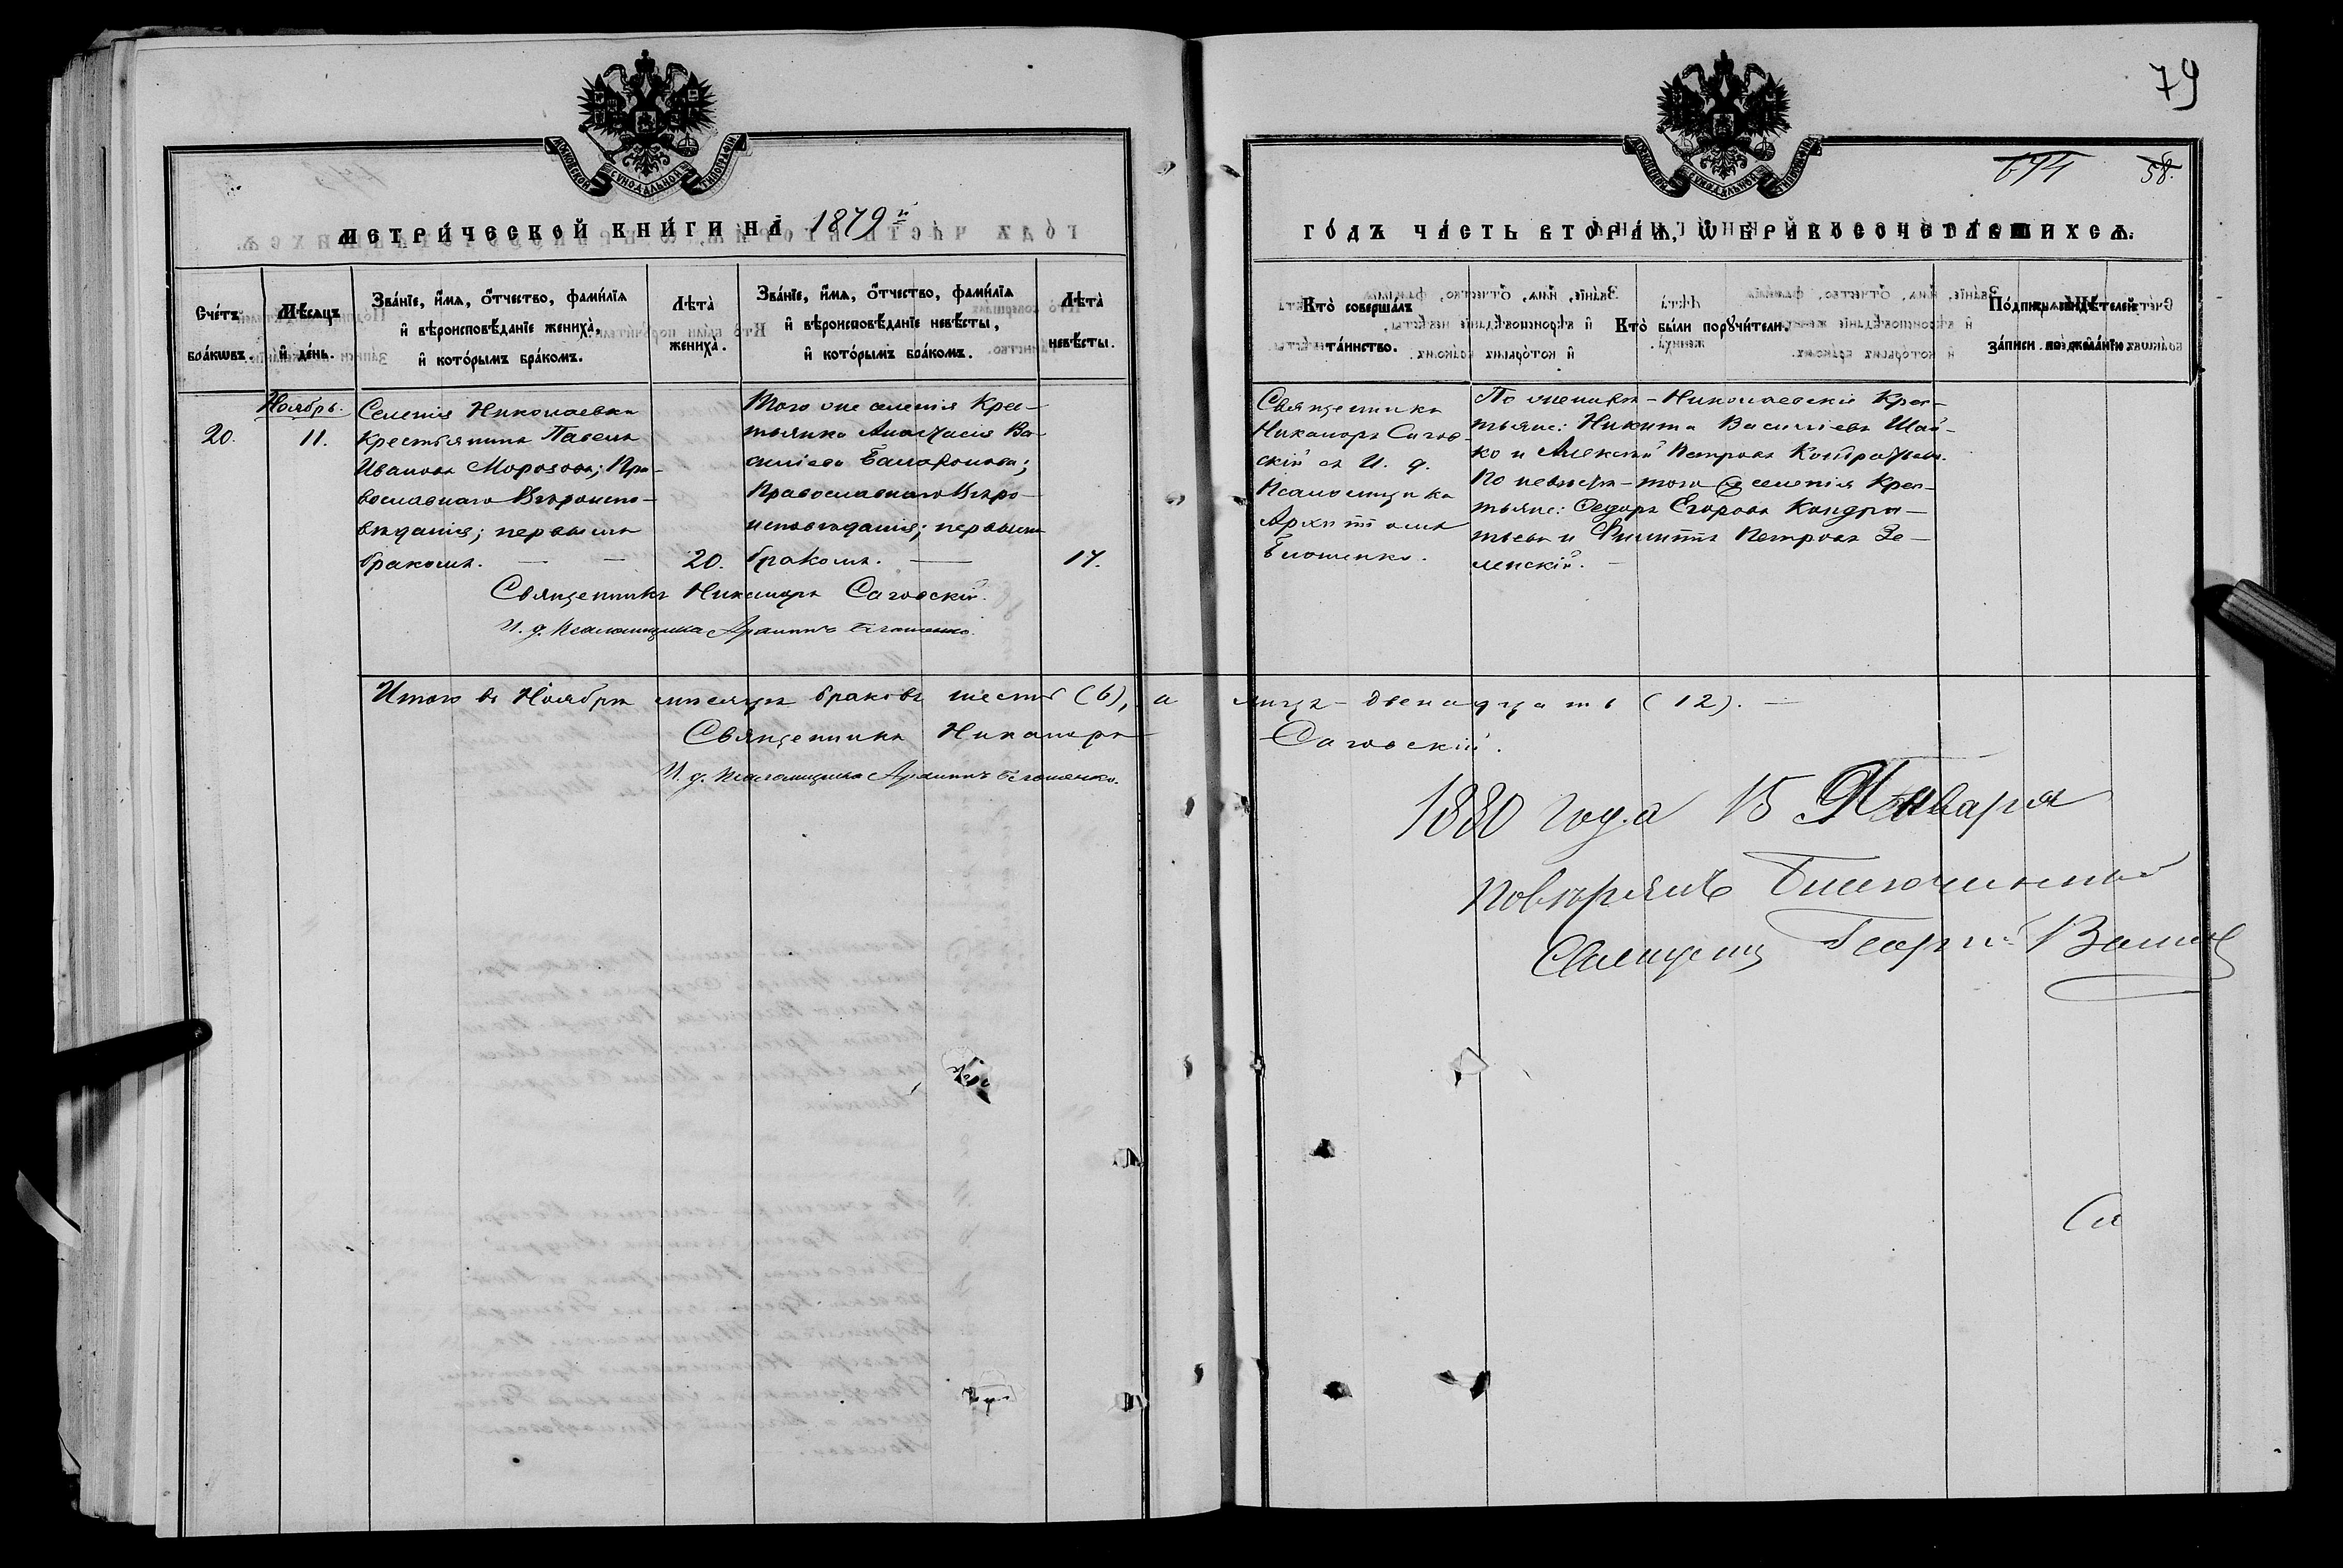 79
58.
МОСКОВСКОЙ СѴНОДАЛЬНОЙ ТИПОГРАФІИ
МОСКОВСКОЙ СѴНОДАЛЬНОЙ ТИПОГРАФІИ
МЕТРИ́ЧЕСКОЙ КНИ́ГИ НА 1879й
ГО́ДЪ ЧА́СТЬ ВТОРА́Ѧ, Ѡ БРАКОСОЧЕТА́ВШИХСѦ.
Сче́тъ бра́кѡвъ.
Мѣ́сѧцъ и҆ де́нь.
Зва́нїе, и҆́мѧ, ѻ҆́тчество, фами́лїѧ и҆ вѣроисповѣ́данїе жениха̀, и҆ кото́рымъ бра́комъ.
Лѣта̀ жениха̀.
Зва́нїе, и҆́мѧ, ѻ҆́тчество, фами́лїѧ и҆ вѣроисповѣ́данїе невѣ́сты, и҆ кото́рымъ бра́комъ.
Лѣта̀ невѣ́сты.
Кто̀ соверша́лъ та́инство.
Кто̀ бы́ли порꙋчи́тели.
По́дпись свидѣ́телей за́писи по жела́нїю.
Ноябрь.
20.
11.
Селенія Николаевки
Крестьянинъ Павелъ
Ивановъ Морозовъ; Пра-
вославнаго Вѣроиспо-
вѣданія; первымъ
бракомъ. —
20.
Того же селенія Крес-
тьянка Анастасія Ва-
силіева
Православнаго Вѣро-
исповѣданія; первымъ
бракомъ. —
17.
Священникъ
Никаноръ Сагов-
скій съ И. д.
Псаломщика
Бѣлошенко.
По женихѣ - Николаевскіе Крес-
тьяне: Никита Василіевъ Шай-
ко и Алексѣй Петровъ Кондратьевъ.
По невѣстѣ - того селенія Крес-
тьяне: Ѳедоръ Егоровъ Кондра-
тьевъ и Филиппъ Петровъ Зе-
ленскій. —
Священникъ Никаноръ Саговскій.
И. д. Псаломщика Бѣлошенко.
Итого въ Ноябрѣ мѣсяцѣ браковъ шесть (6), а лицъ - двенадцать (12). —
Священникъ Никаноръ Саговскій.
И. д. Псаломщика Бѣлошенко.
1880 года 15 Января
повѣрялъ Благочинный
Священ Георгій